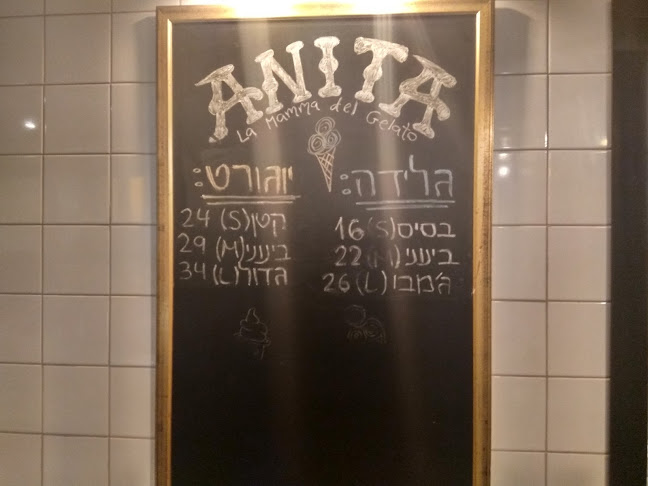 ANITA
La Mamma del Gelato
גלידה:
בסיס (S) 16
בינוני (M) 22
ג'מבו (L) 26
יוגורט:
קטן (S) 24
בינוני (M) 29
גדול (L) 34